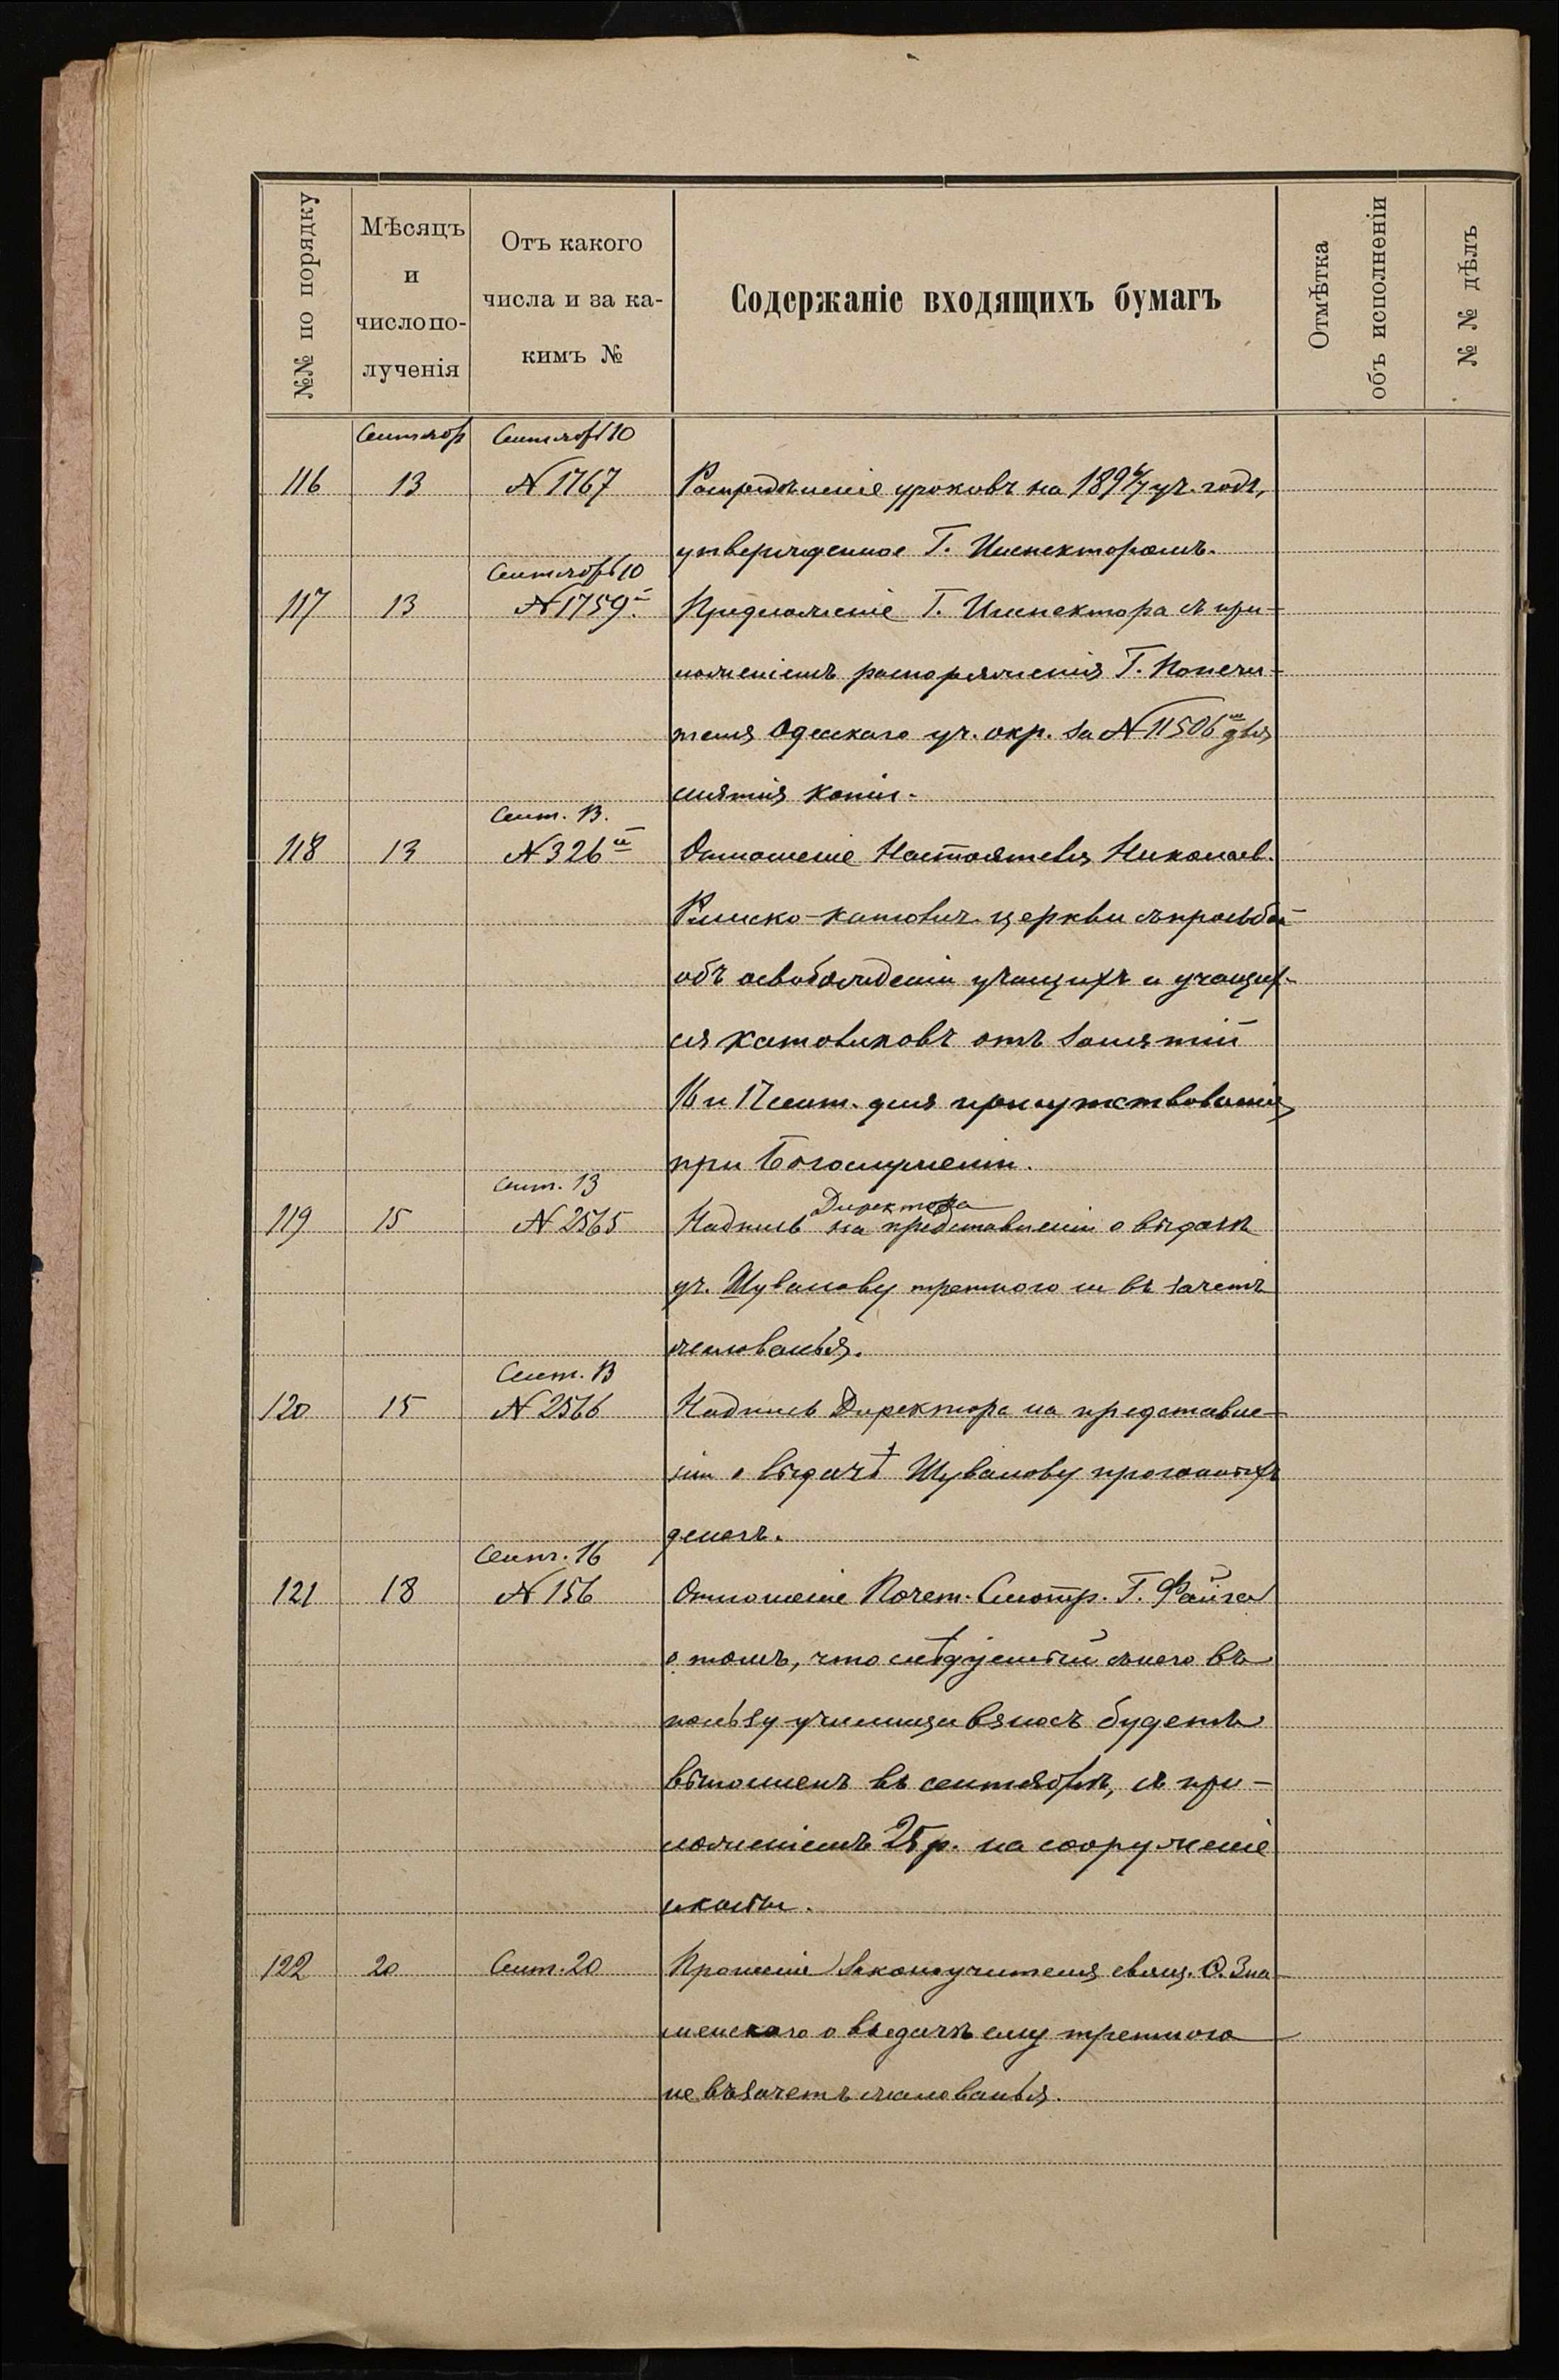 №№ по порядку
Мѣсяцъ
и
число по-
лученія
Отъ какого
числа и за ка-
кимъ №
Содержаніе входящихъ бумагъ
Отмѣтка
объ исполненіи
№ № дѣлъ
Сентябр Сентябрь 10
116 13 № 1767 Распредѣленіе уроковъ на 1896/7 уч. годъ,
утвержденное Г. Инспекторомъ.
Сентябрь 10
117 13 № 1759. Предложеніе Г. Инспектора съ при-
ложеніемъ распоряженія Г. Попечи-
теля Одесскаго уч. окр. за № 11506 для
снятія копіи.
Сент. 13.
118 13 № 326 Отношеніе Настоятеля Николаев.
Римско-католич. церкви съ просьбой
объ освобожденіи учащихъ и учащих-
ся католиковъ отъ занятій
16 и 17 сент. для присутствованія
при Богослуженіи.
Сент. 13
Директора
119 15 № 2565 Надпись на представленіи о выдачѣ
уч. Шувалову третного не въ зачетъ
жалованья.
Сент. 13
120 15 № 2566 Надпись Директора на представле-
ніи о выдачѣ Шувалову прогонныхъ
денегъ.
Сент. 16
121 18 № 156 Отношеніе Почет. Смотр. Г. Файга
о томъ, что слѣдуемый съ него въ
пользу училища взносъ будетъ
выполненъ въ сентябрѣ, съ при-
ложеніемъ 25 р. на сооруженіе
иконы.
122 20 Сент. 20 Прошеніе Законоучителя свящ. О. Зна-
менскаго о выдачѣ ему третного
не въ зачетъ жалованья.